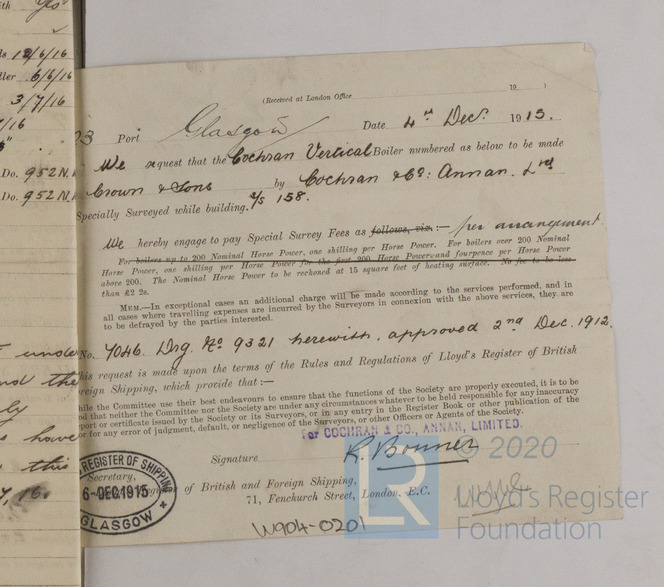 ith yes
ls 12/6/16
ller 6/6/16
3/7/16
7/16
Do. 952 N.
Do. 952 N.
(Received at London Office 19 )
03 Port Glasgow Date 4th Decr. 1915.
We request that the Cochran Vertical Boiler numbered as below to be made
Crown & Sons by Cochran & Co: Annan. Ltd
Specially Surveyed while building. S/S 158.
We hereby engage to pay Special Survey Fees as follows, viz.:— per arrangement
For boilers up to 200 Nominal Horse Power, one shilling per Horse Power. For boilers over 200 Nominal
Horse Power, one shilling per Horse Power for the first 200 Horse Power and fourpence per Horse Power
above 200. The Nominal Horse Power to be reckoned at 15 square feet of heating surface. No fee to be less
than £2 2s.
MEM.—In exceptional cases an additional charge will be made according to the services performed, and in
all cases where travelling expenses are incurred by the Surveyors in connection with the above services, they are
to be defrayed by the parties interested.
No. 7046. Drg. No 9321 herewith, approved 2nd Dec. 1912.
his request is made upon the terms of the Rules and Regulations of Lloyd's Register of British
reign Shipping, which provide that :—
hile the Committee use their best endeavours to ensure that the functions of the Society are properly executed, it is to be
d that neither the Committee nor the Society are under any circumstances whatever to be held responsible for any inaccuracy
port or certificate issued by the Society or its Surveyors, or in any entry in the Register Book or other publication of the
or for any error of judgment, default, or negligence of the Surveyors, or other Officers or Agents of the Society.
For COCHRAN & CO., ANNAN, LIMITED.
Signature R. Bonner
Secretary,
of British and Foreign Shipping,
71, Fenchurch Street, London. E.C.
REGISTER OF SHIPPING
6-DEC1915
GLASGOW
W904-0201
unde
nd the
ly
s have
this
7, 16.
© 2020
LR
Lloyd's Register
Foundation